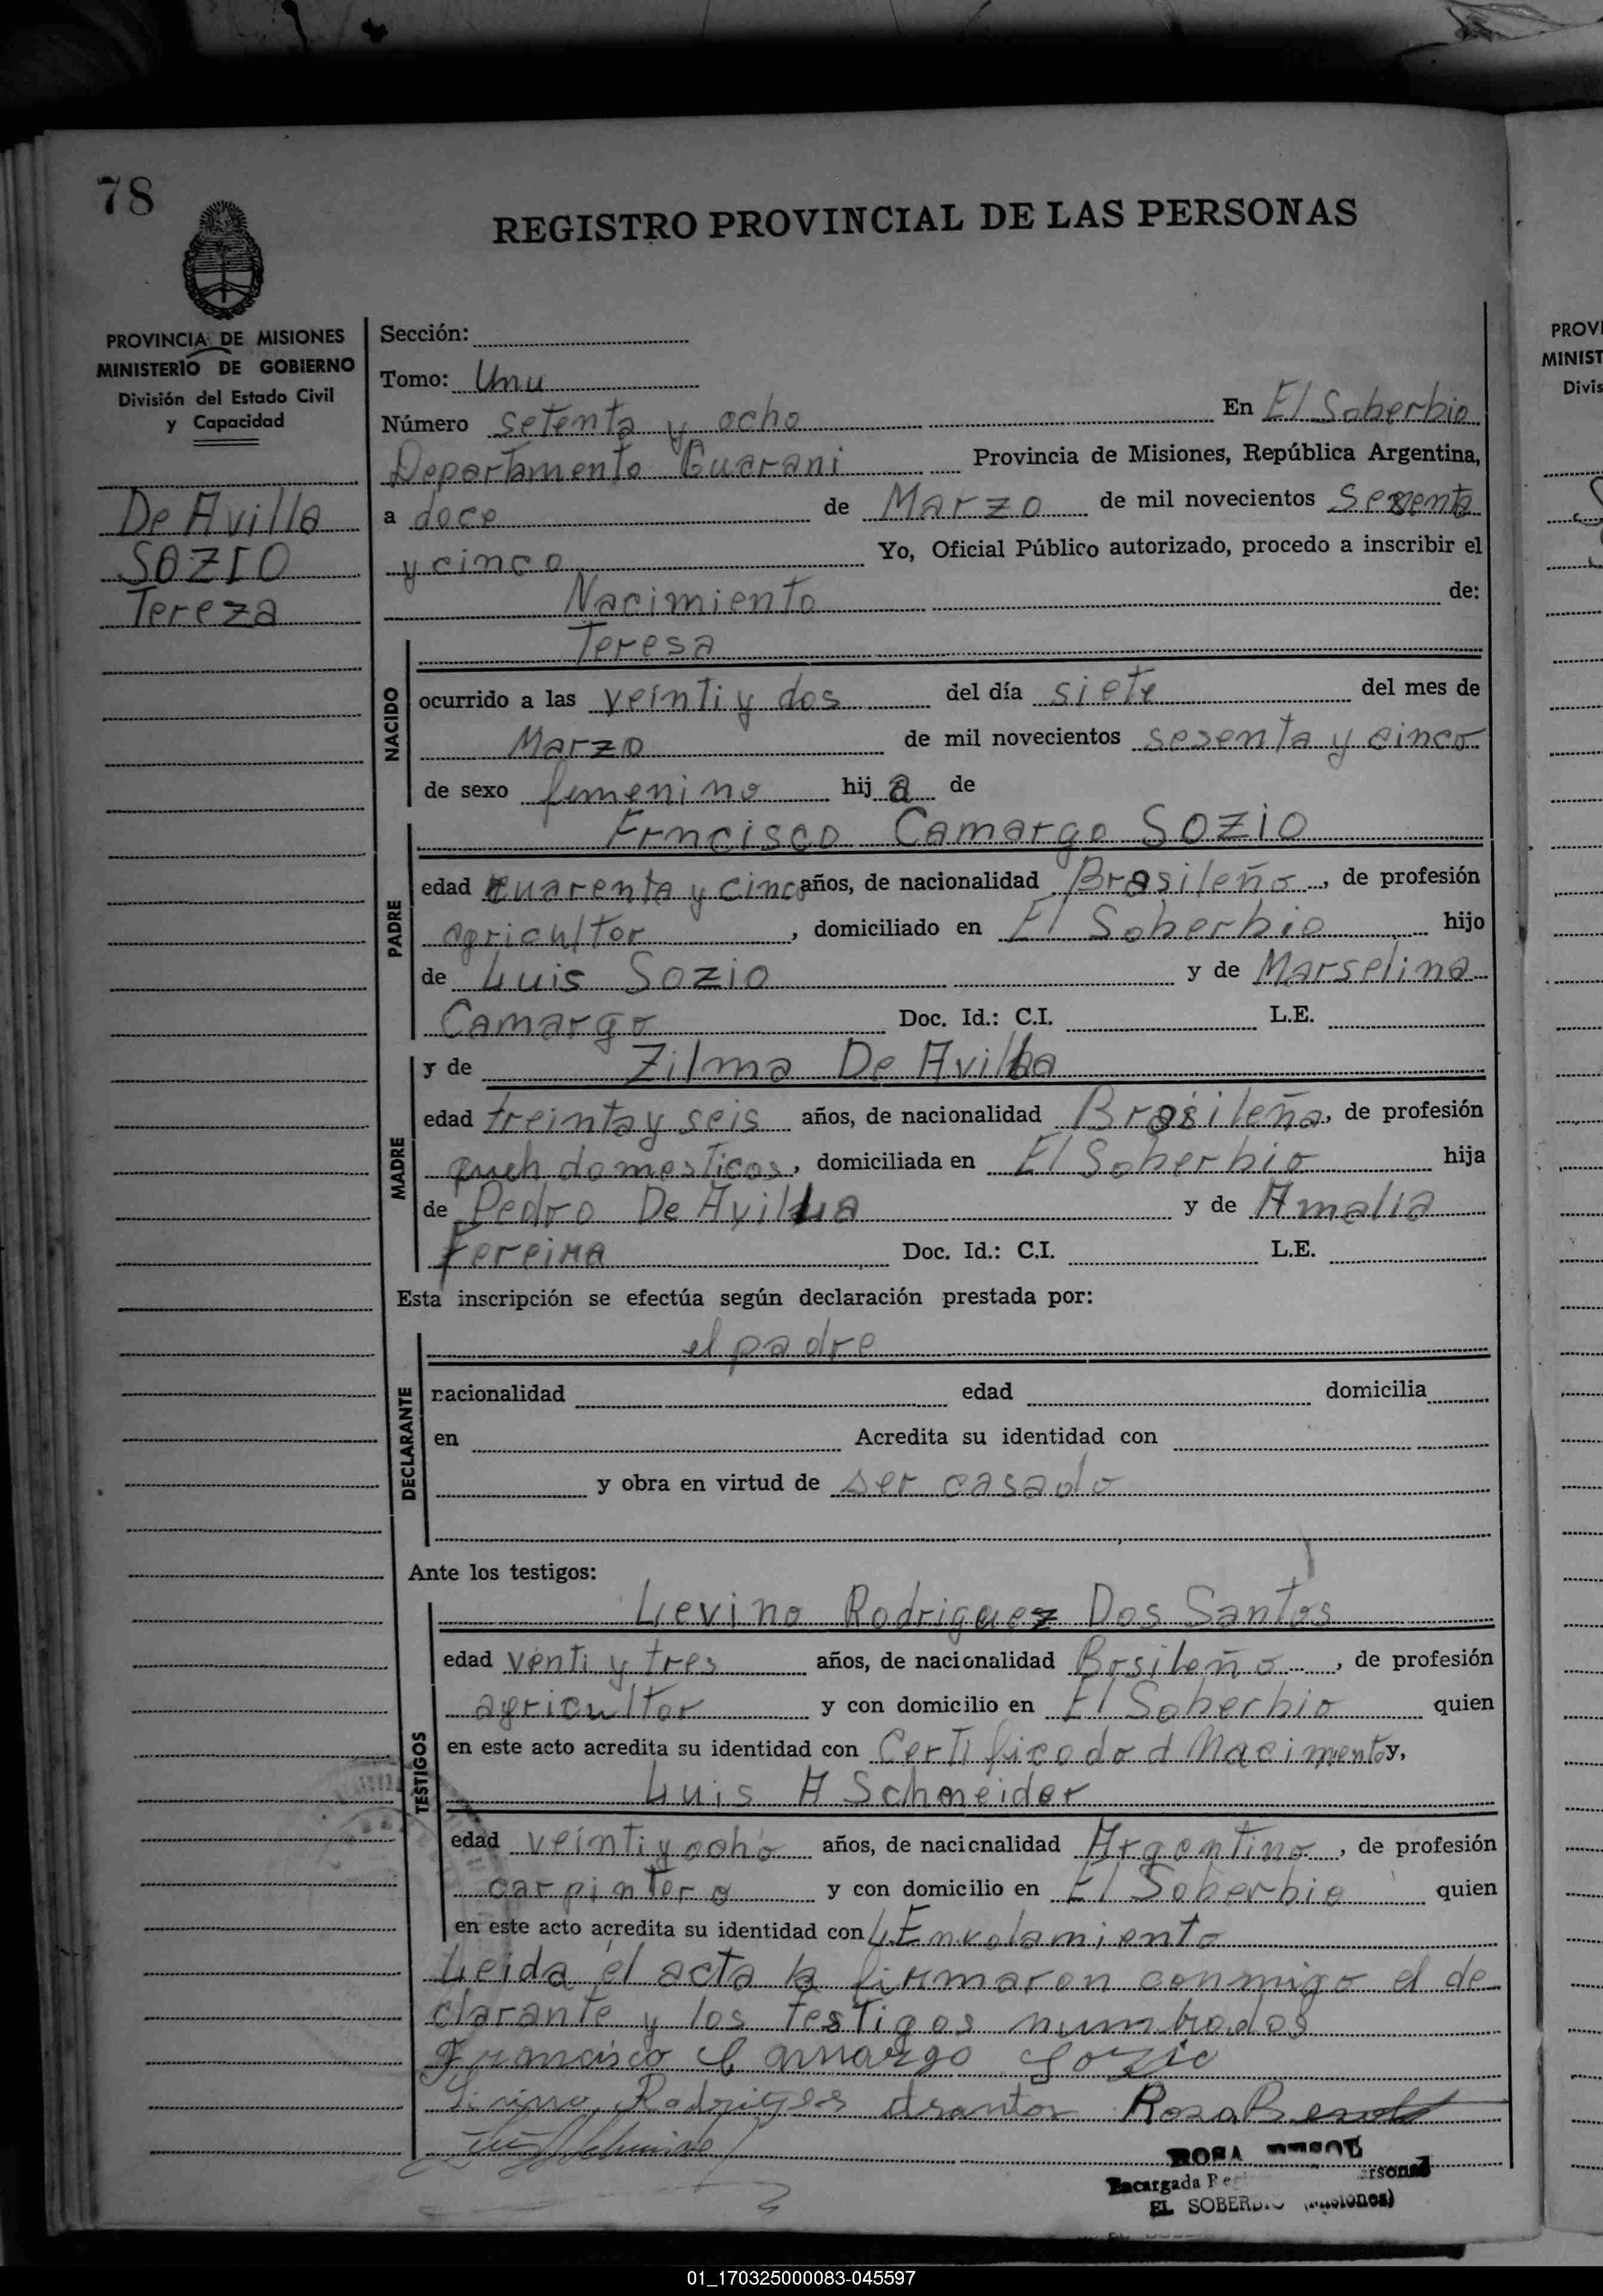 78
REGISTRO PROVINCIAL DE LAS PERSONAS
PROVINCIA DE MISIONES
MINISTERIO DE GOBIERNO
División del Estado Civil
y Capacidad
De Avilla
SOZIO
Tereza
Sección:
Tomo: Unu
Número setenta y ocho En El Soberbio
Departamento Guarani Provincia de Misiones, República Argentina,
a doce de Marzo de mil novecientos Sesenta
y cinco Yo, Oficial Público autorizado, procedo a inscribir el
Nacimiento de:
Teresa
NACIDO
ocurrido a las veinti y dos del día siete del mes de
Marzo de mil novecientos sesenta y cinco
de sexo femenino hij a de
PADRE
Frncisco Camargo Sozio
edad cuarenta y cinco años, de nacionalidad Brasileño, de profesión
agricultor, domiciliado en El Soberbio hijo
de Luis Sozio y de Marselina
Camargo Doc. Id.: C.I. L.E.
MADRE
y de Zilma De Avilla
edad treinta y seis años, de nacionalidad Brasileña, de profesión
domesticos, domiciliada en El Soberbio hija
de Pedro De Avilla y de Amalia
Fereira Doc. Id.: C.I. L.E.
Esta inscripción se efectúa según declaración prestada por:
DECLARANTE
el padre
nacionalidad edad domicilia
en Acredita su identidad con
y obra en virtud de ser casado
Ante los testigos:
TESTIGOS
Lievino Rodriguez Dos Santos
edad venti y tres años, de nacionalidad Brsileño, de profesión
agricultor y con domicilio en El Soberbio quien
en este acto acredita su identidad con Certificado d Nacimento y,
Luis A Schneider
edad veinti y ocho años, de nacionalidad Argentino, de profesión
carpintero y con domicilio en El Soberbio quien
en este acto acredita su identidad con L Enrolamiento
Leida el acta la firmaron conmigo el de
clarante y los testigos numbrados
Francisco Camargo Sozio
Rodrigues dsantos Rosa
ROSA
Encargada
EL SOBERBIO (Misiones)
PROVI
MINIST
Divis
01_170325000083-045597